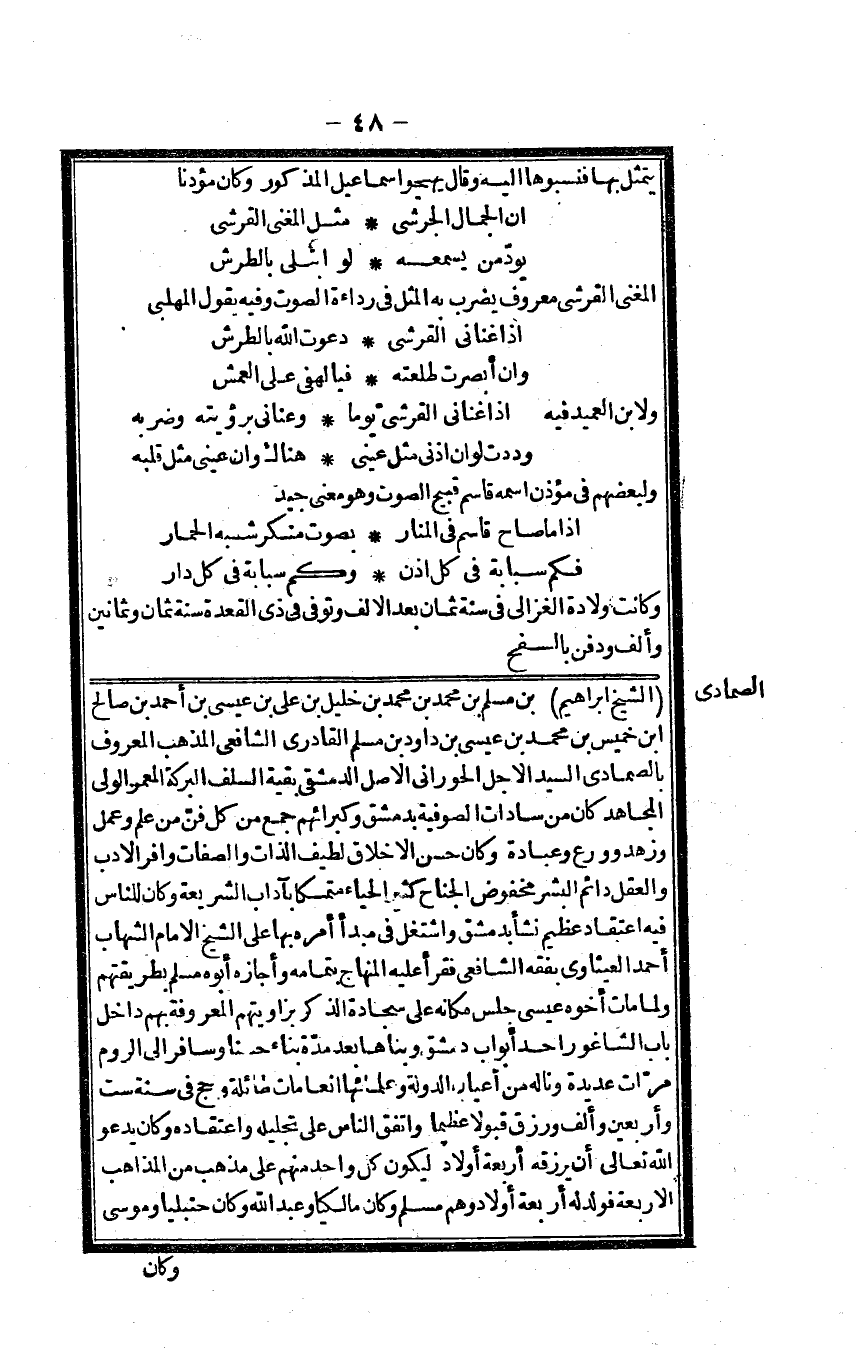 - ٤٨ -
يتمثل بها فنسبوها اليه وقال يهجو اسماعيل المذكور وكان مؤذنا
ان الجمال الجرشى * مثل المغنى القرشى
يودّ من يسمعه * لو ابتلى بالطرش
المغنى القرشى معروف يضرب به المثل فى رداءة الصوت وفيه يقول المهلبى
اذا غنانى القرشى * دعوت الله بالطرش
وان أبصرت طلعته * فيا لهفى على العمش
ولابن العميد فيه اذا غنانى القرشى يوما * وعنانى برؤيته وضربه
وددت لوان اذنى مثل عينى * هناك وان عينى مثل قلبه
ولبعضهم فى مؤذن اسمه قاسم قبيح الصوت وهو معنى جيد
اذا ما صاح قاسم فى المنار * بصوت منكر شبه الحمار
فكم سبابة فى كل اذن * وكم سبابة فى كل دار
وكانت ولادة الغزالى فى سنة ثمان بعد الالف وتوفى فى ذى القعدة سنة ثمان وثمانين
وألف ودفن بالسفح
الصمادى
(الشيخ ابراهيم) بن مسلم بن محمد بن محمد بن خليل بن على بن عيسى بن أحمد بن صالح
ابن خميس بن محمد بن عيسى بن داود بن مسلم القادرى الشافعى المذهب المعروف
بالصمادى السيد الاجل الحورانى الاصل الدمشقى بقية السلف البركة المعمر الولى
المجاهد كان من سادات الصوفية بدمشق وكبرائهم جمع من كل فنّ من علم وعمل
وزهد وورع وعبادة وكان حسن الاخلاق لطيف الذات والصفات وافر الادب
والعقل دائم البشر مخفوض الجناح كثير الحياء متمسكا بآداب الشريعة وكان للناس
فيه اعتقاد عظيم نشأ بدمشق واشتغل فى مبدأ أمره بها على الشيخ الامام الشهاب
أحمد العيثاوى بفقه الشافعى فقرأ عليه المنهاج بتمامه وأجازه أبوه مسلم بطريقتهم
ولما مات أخوه عيسى جلس مكانه على سجادة الذكر بزاويتهم المعروفة بهم داخل
باب الشاغور احد أبواب دمشق وبناها بعد مدّة بناء حسنا وسافر الى الروم
مرّات عديدة وناله من أعيان الدولة وعلمائها انعامات طائلة وحج فى سنة ست
وأربعين وألف ورزق قبولا عظيما واتفق الناس على تجليله واعتقاده وكان يدعو
الله تعالى أن يرزقه أربعة أولاد ليكون كل واحد منهم على مذهب من المذاهب
الاربعة فولد له أربعة أولاد وهم مسلم وكان مالكيا وعبد الله وكان حنبليا وموسى
وكان